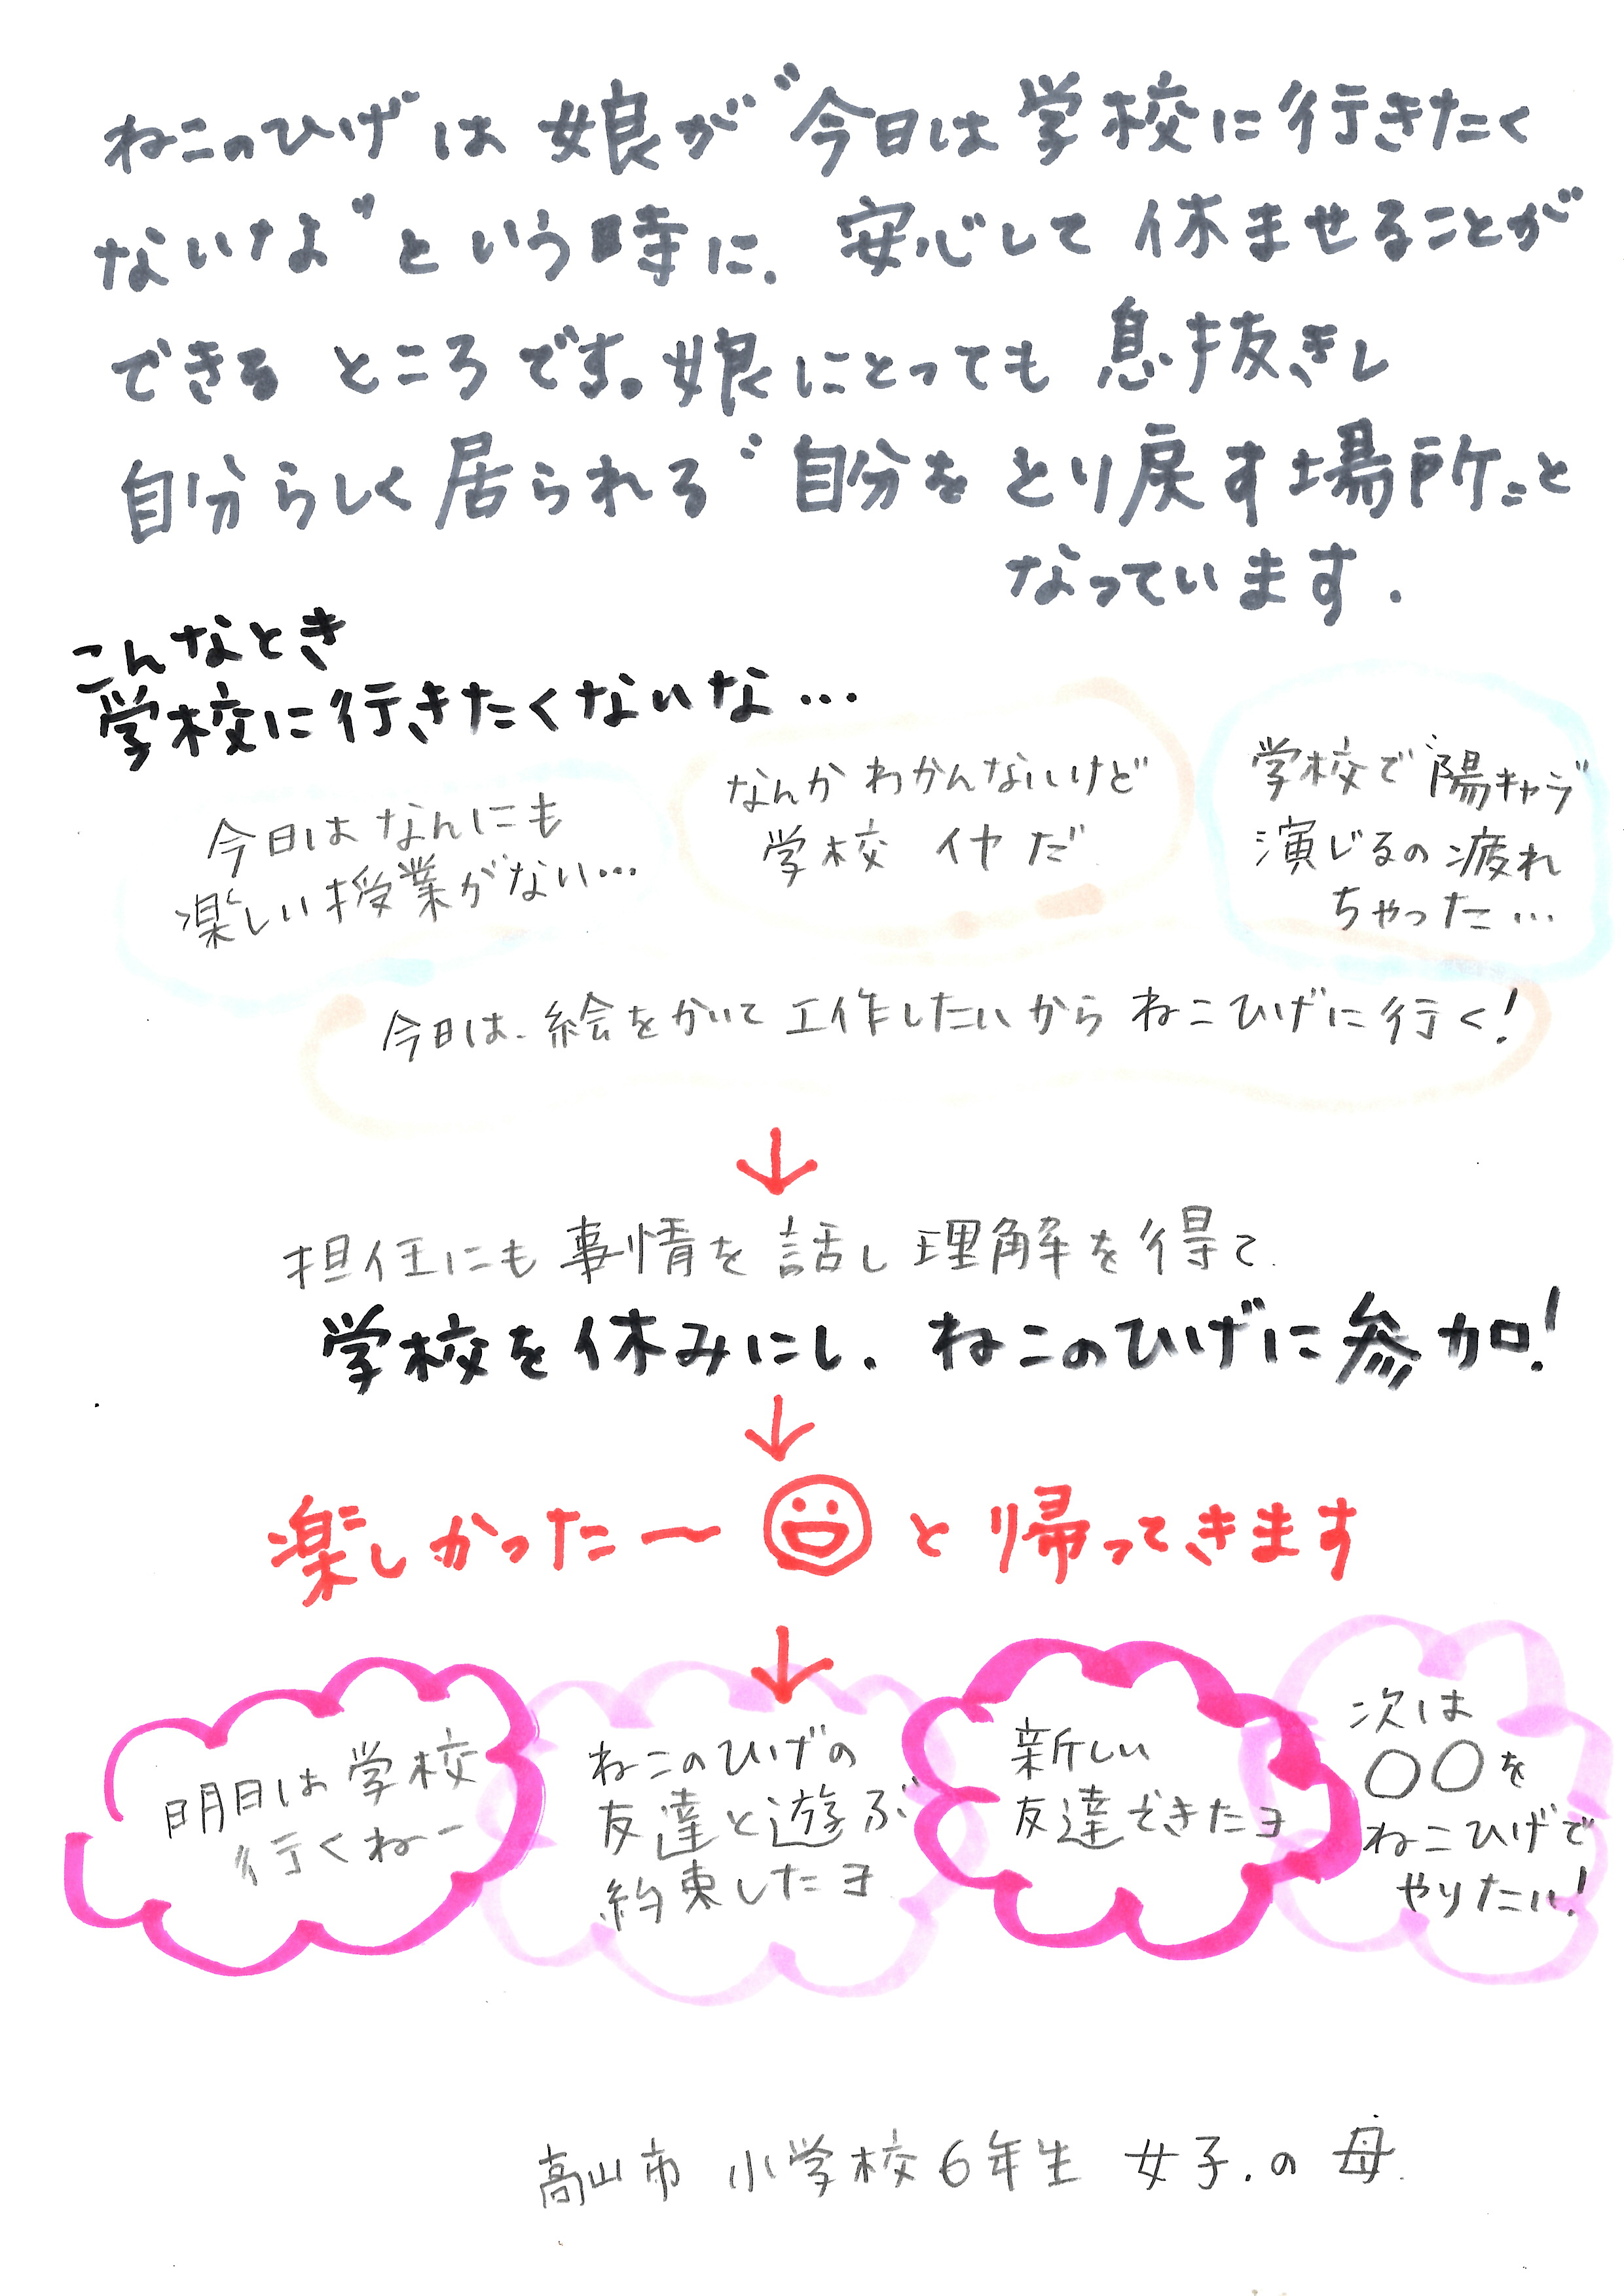 ねこのひげは 娘が“今日は学校に行きたく
ないなぁ”という時に、安心して休ませることが
できるところです。娘にとっても息抜きし
自分らしく居られる“自分をとり戻す場所”と
なっています.
こんなとき
学校に行きたくないな…
今日はなんにも
楽しい授業がない…
なんかわかんないけど
学校イヤだ
学校で“陽キャラ”
演じるの疲れ
ちゃった…
今日は、絵をかいて工作したいからねこひげに行く!
↓
担任にも事情を話し理解を得て
学校を休みにし、ねこのひげに参加!
↓
楽しかった〜😃と帰ってきます
↓
明日は学校
行くねー
ねこのひげの
友達と遊ぶ
約束したヨ
新しい
友達できたヨ
次は
〇〇を
ねこひげで
やりたい!
高山市 小学校6年生 女子.の母